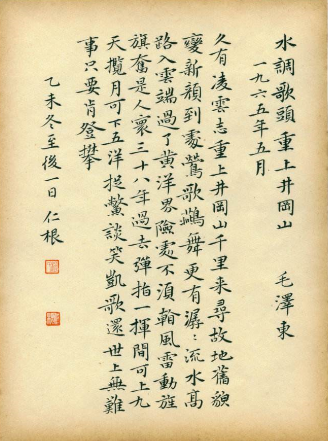 水調歌頭重上井岡山　毛澤東
一九六五年五月
久有凌雲志重上井岡山千里來尋故地舊貌
變新顔到處鶯歌鷰舞更有潺ミ流水高
路入雲端過了黄洋界險處不湏翰風雷動旌
旗奮是人寰三十八年過去彈指一揮間可上九
天攬月可下五洋捉鱉談笑凱歌還世上無難
事只要肯登攀
乙未冬至後一日 仁根